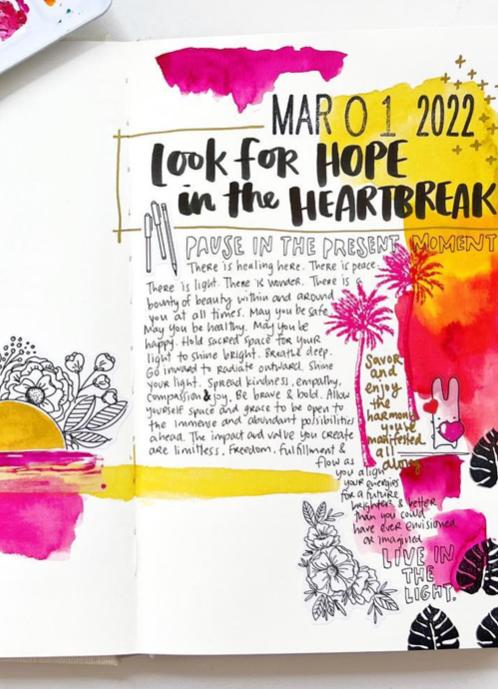 MAR 01 2022
Look for HOPE
in the HEARTBREAK
PAUSE IN THE PRESENT MOMENT
There is healing here. There is peace.
There is light. There is wonder. There is a
bounty of beauty within and around
you at all times. May you be safe.
May you be healthy. May you be
happy. Hold sacred space for your
light to shine bright. Breathe deep.
Go inward to radiate outward. Shine
your light. Spread kindness, empathy,
compassion & joy. Be brave & bold. Allow
yourself space and grace to be open to
the immense and abundant possibilities
ahead. The impact and value you create
are limitless. Freedom, fulfillment &
flow as
you align
your energies
for a future
brighter & better
than you could
have ever envisioned
or imagined
Savor
and
enjoy
the
harmony
you've
manifested
all
along
LIVE IN
THE
LIGHT.